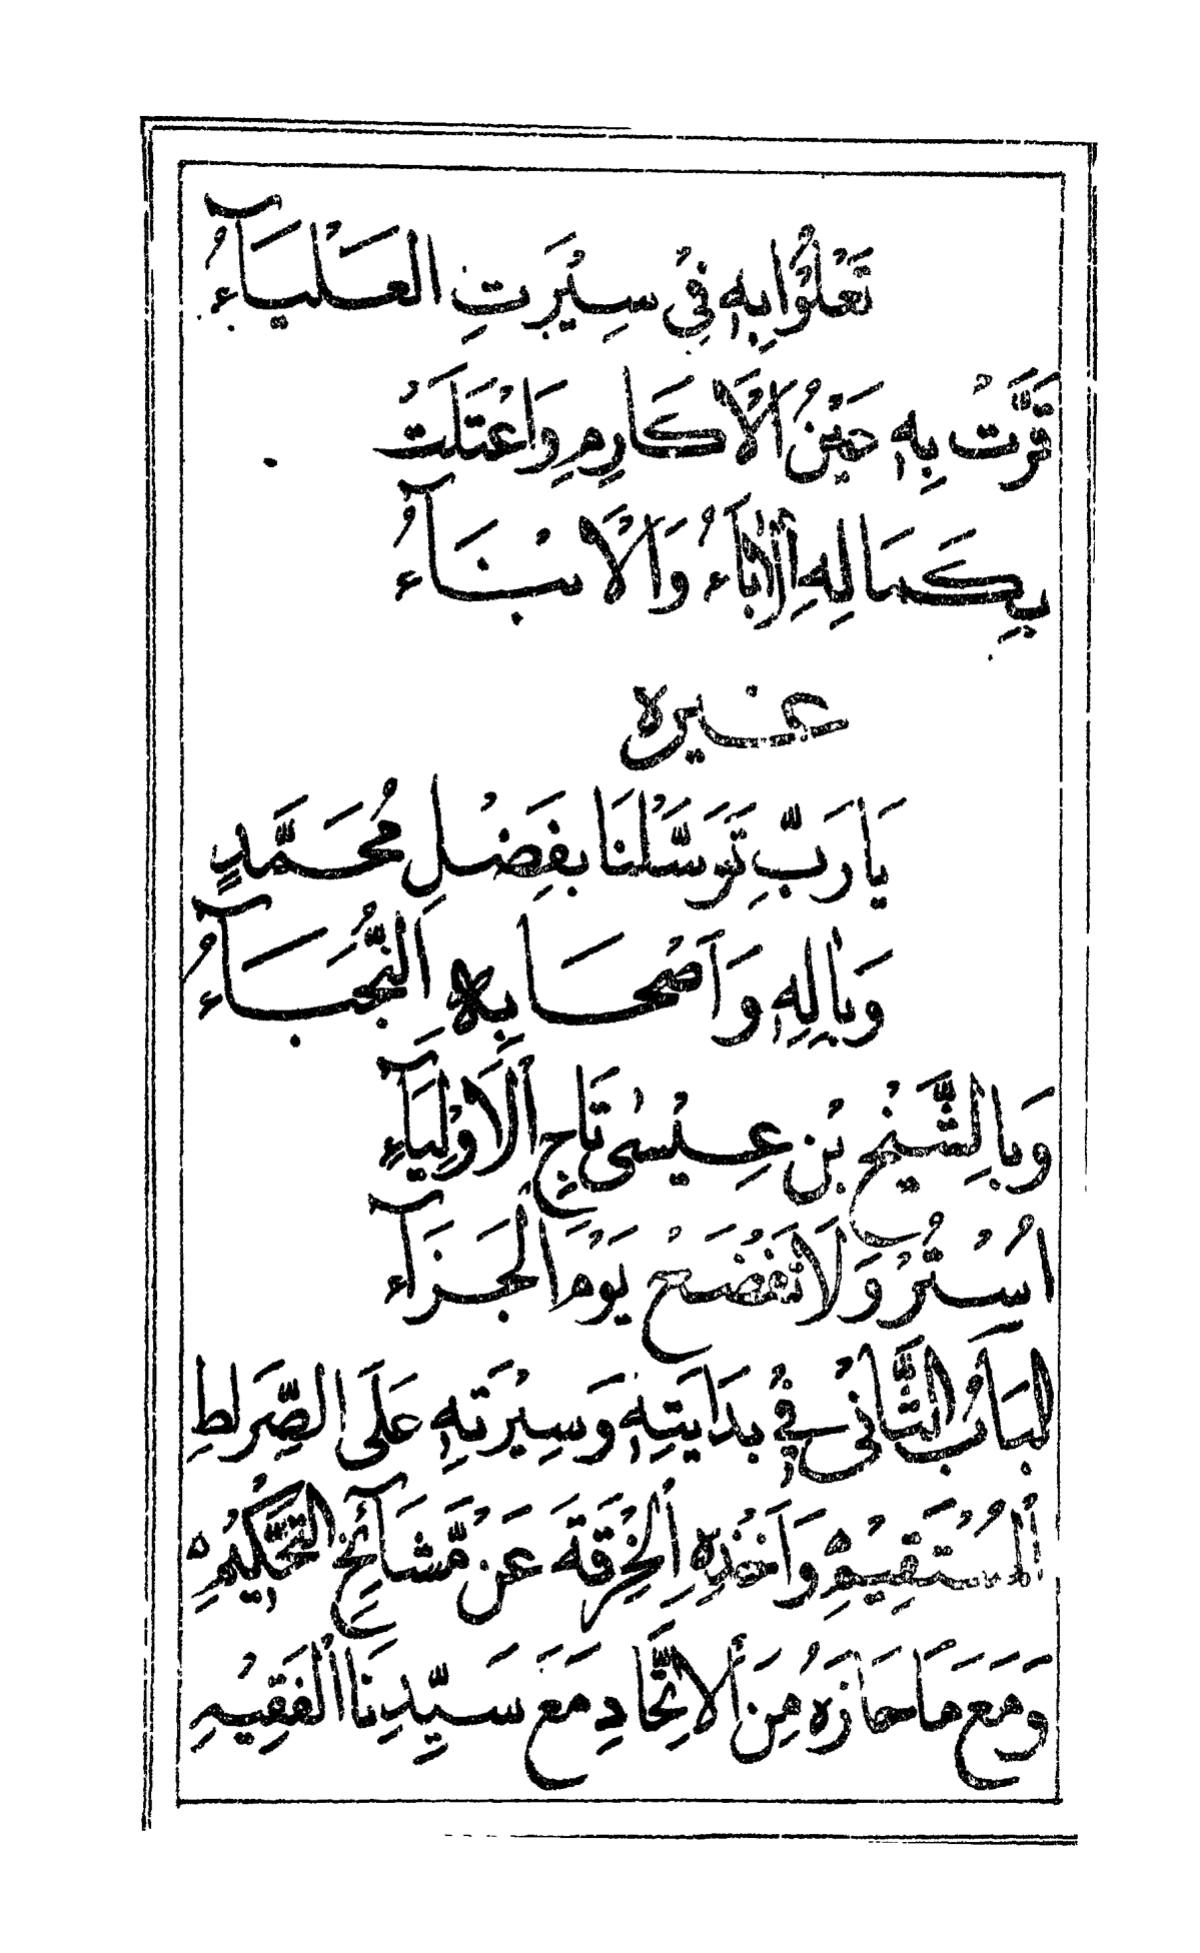 تَعْلُوْا بِهٖ فِيْ سِيْرَتِ الْعَلْيَآءُ
قَرَّتْ بِهٖ عَيْنُ الْاَكَارِمِ وَاعْتَلَتْ
بِكَمَالِهِ الْاٰبَاءُ وَالْاَبْنَآءُ
غيره
يَارَبِّ تَوَسَّلْنَا بِفَضْلِ مُحَمَّدٍ
وَبِاٰلِهٖ وَاَصْحَابِهِ النُّجَبَآءُ
وَبِالشَّيْخِ بْنِ عِيْسٰى تَاجِ الْاَوْلِيَآءِ
اُسْتُرْ وَلَا تَفْضَحْ يَوْمَ الْجَزَآء
لبَابُ الثَّانِيْ فِيْ بِدَايَتِهٖ وَسِيْرَتِهٖ عَلَى الصِّرٰطِ
الْمُسْتَقِيْمِ وَاَخْذِهِ الْخِرْقَةَ عَنْ مَّشَآئِخِ التَّحْكِيْمِ ٥
وَمَعَ مَا حَازَهُ مِنَ الْاِتِّحَادِ مَعَ سَيِّدِنَا الْفَقِيْهِ